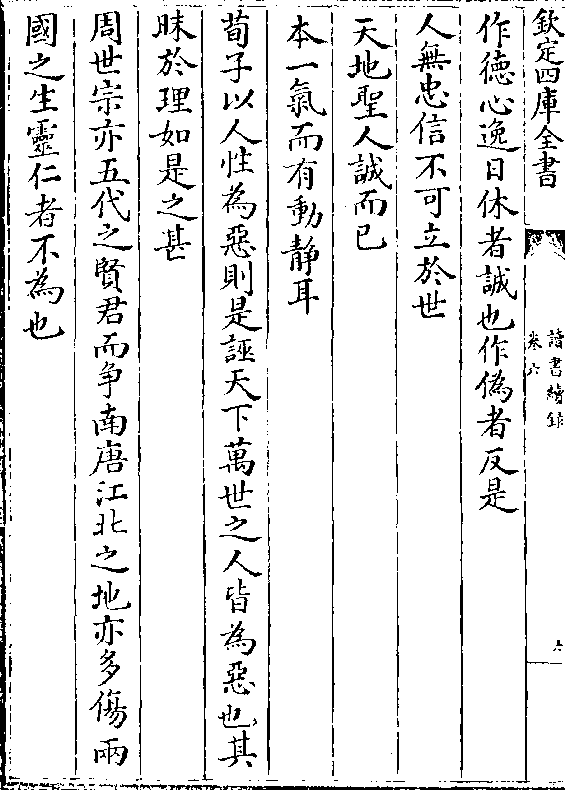 欽定四庫全書
讀書續錄
卷六
作德心逸日休者誠也作僞者反是
人無忠信不可立於世
天地聖人誠而已
本一氣而有動靜耳
荀子以人性為惡則是誣天下萬世之人皆為惡也其
昧於理如是之甚
周世宗亦五代之賢君而争南唐江北之地亦多傷兩
國之生靈仁者不為也